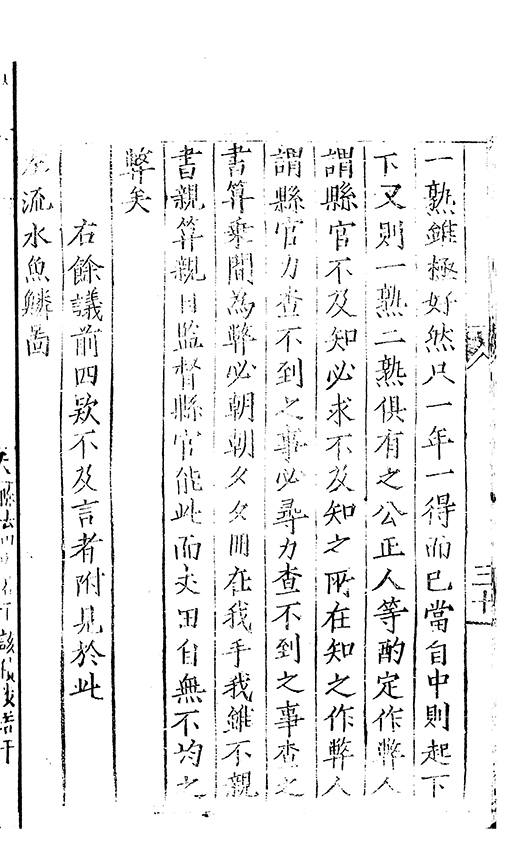 一熟雖極好然只一年一得而已當自中則起下
下又則一熟二熟俱有之公正人等酌定作弊人
謂縣官不及知必求不及知之所在知之作弊人
謂縣官力查不到之事必尋力查不到之事查之
書算乘間為弊必朝朝夕夕冊在我手我雖不親
書親算親目監督縣官能此而丈田自無不均之
弊矣
右餘議前四欵不及言者附見於此
流水魚鱗啚
三十